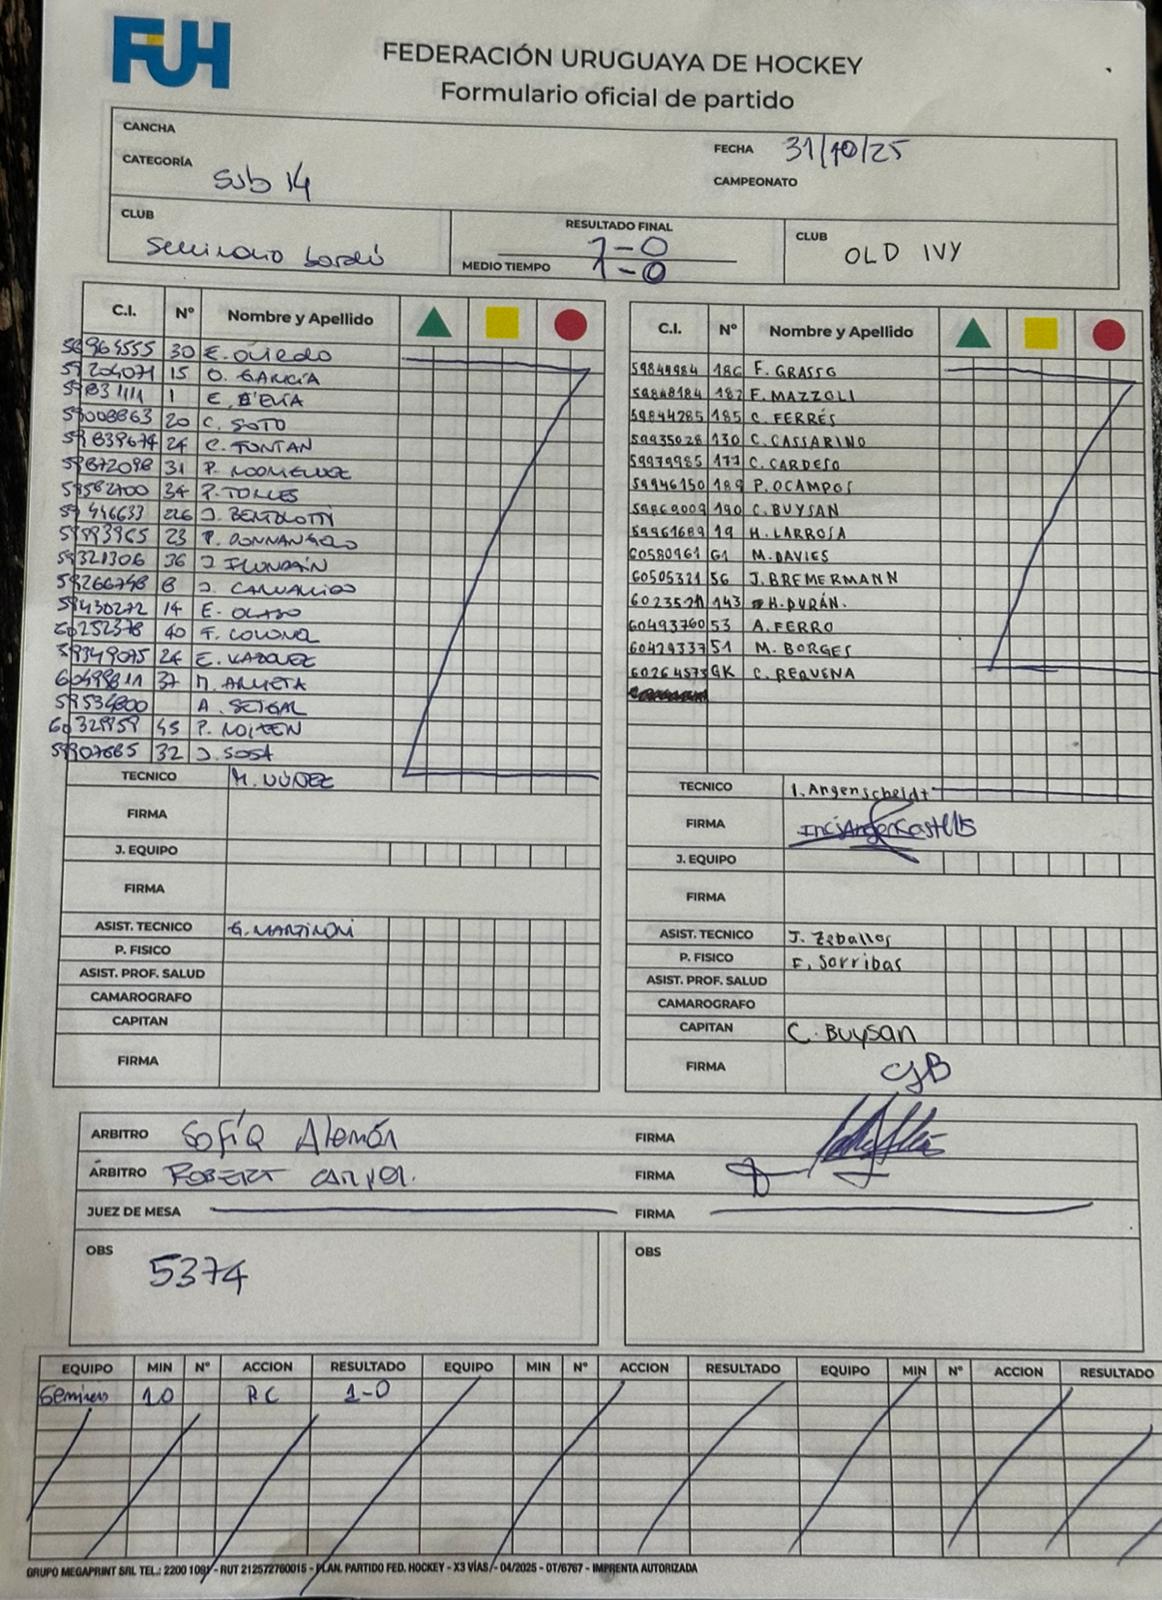 FUH
FEDERACIÓN URUGUAYA DE HOCKEY
Formulario oficial de partido
CANCHA
FECHA 31/10/25
CATEGORÍA Sub 14
CAMPEONATO
CLUB Seminario bordó
RESULTADO FINAL 1-0
MEDIO TIEMPO 1-0
CLUB OLD IVY
C.I. Nº Nombre y Apellido
30 E. OVIEDO
15 O. GARCÍA
1 E. D'ELIA
20 C. SOTO
24 C. FONTAN
31 P.
34 P. TORRES
226 J. BERTOLOTTI
23 P. DONNANGELO
36 J.
8 J. CARVALLIDO
14 E. OLASO
40 F. COLOMA
E. VAZQUEZ
37 M. ARLETA
A. SEIGAL
45 P.
32 J. SOSA
TECNICO M. NÚÑEZ
FIRMA
J. EQUIPO
FIRMA
ASIST. TECNICO G. MARTINONI
P. FISICO
ASIST. PROF. SALUD
CAMAROGRAFO
CAPITAN
FIRMA
C.I. Nº Nombre y Apellido
59844984 186 F. GRASSO
59848184 187 F. MAZZOLI
59844285 185 C. FERRÉS
59935028 130 C. CASSARINO
59979985 177 C. CARDESO
59946150 189 P. OCAMPOS
59869009 190 C. BUYSAN
59961689 19 H. LARROSA
60580961 61 M. DAVIES
60505321 56 J. BREMERMANN
143 H. DURÁN.
60493760 53 A. FERRO
60429337 51 M. BORGES
60264573 GK C. REQUENA
TECNICO I. Angenscheidt
FIRMA
J. EQUIPO
FIRMA
ASIST. TECNICO J. Zeballos
P. FISICO F. Sorribas
ASIST. PROF. SALUD
CAMAROGRAFO
CAPITAN C. BUYSAN
FIRMA CJB
ARBITRO Sofía Alemán FIRMA
ARBITRO ROBERT FIRMA
JUEZ DE MESA FIRMA
OBS 5374
OBS
EQUIPO MIN Nº ACCION RESULTADO EQUIPO MIN Nº ACCION RESULTADO EQUIPO MIN Nº ACCION RESULTADO
10 PC 1-0
GRUPO MEGAPRINT SRL TEL.: 2200 1091 - RUT 212572760015 - PLAN. PARTIDO FED. HOCKEY - X3 VÍAS/ - 04/2025 - OT/6767 - IMPRENTA AUTORIZADA